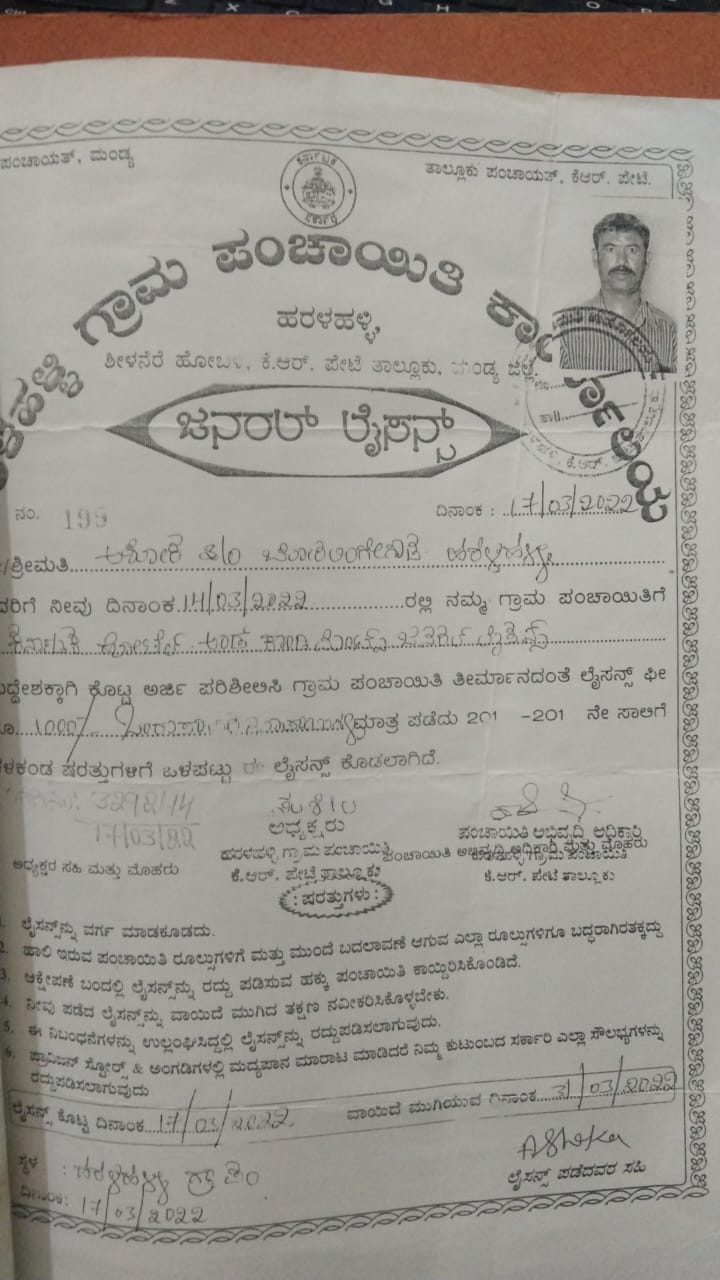 ಪಂಚಾಯತ್, ಮಂಡ್ಯ
ತಾಲ್ಲೂಕು ಪಂಚಾಯತ್, ಕೆಆರ್. ಪೇಟೆ.
ಕರ್ನಾಟಕ ಸರ್ಕಾರ
ಗ್ರಾಮ ಪಂಚಾಯಿತಿ ಕಾರ್ಯಾಲಯ
ಹರಳಹಳ್ಳಿ,
ಶೀಳನೆರೆ ಹೋಬಳಿ, ಕೆ.ಆರ್. ಪೇಟೆ ತಾಲ್ಲೂಕು, ಮಂಡ್ಯ ಜಿಲ್ಲೆ.
ಜನರಲ್ ಲೈಸನ್ಸ್
ನಂ. 199
ದಿನಾಂಕ : 17/03/2022
/ಶ್ರೀಮತಿ ಅಶೋಕ S/o ಹರಳಹಳ್ಳಿ
ವರಿಗೆ ನೀವು ದಿನಾಂಕ 14/03/2022 ರಲ್ಲಿ ನಮ್ಮ ಗ್ರಾಮ ಪಂಚಾಯಿತಿಗೆ
ಜನರಲ್ ಲೈಸೆನ್ಸ್
ದ್ದೇಶಕ್ಕಾಗಿ ಕೊಟ್ಟ ಅರ್ಜಿ ಪರಿಶೀಲಿಸಿ ಗ್ರಾಮ ಪಂಚಾಯಿತಿ ತೀರ್ಮಾನದಂತೆ ಲೈಸನ್ಸ್ ಫೀ
ರೂ. 1000/- ಮಾತ್ರ ಪಡೆದು 201 -201 ನೇ ಸಾಲಿಗೆ
ಳಕಂಡ ಷರತ್ತುಗಳಿಗೆ ಒಳಪಟ್ಟು ಈ ಲೈಸನ್ಸ್ ಕೊಡಲಾಗಿದೆ.
3298/14
17/03/22
ಅಧ್ಯಕ್ಷರು
ಹರಳಹಳ್ಳಿ ಗ್ರಾಮ ಪಂಚಾಯಿತಿ
ಕೆ.ಆರ್. ಪೇಟೆ ತಾಲ್ಲೂಕು
ಪಂಚಾಯಿತಿ ಅಭಿವೃದ್ಧಿ ಅಧಿಕಾರಿ
ಪಂಚಾಯಿತಿ ಅಭಿವೃದ್ಧಿ ಅಧಿಕಾರಿ ಸಹಿ ಮತ್ತು ಮೊಹರು
ಹರಳಹಳ್ಳಿ ಗ್ರಾಮ ಪಂಚಾಯಿತಿ
ಕೆ.ಆರ್. ಪೇಟೆ ತಾಲ್ಲೂಕು
ಅಧ್ಯಕ್ಷರ ಸಹಿ ಮತ್ತು ಮೊಹರು
: ಷರತ್ತುಗಳು :
1. ಲೈಸನ್ಸ್‌ನ್ನು ವರ್ಗ ಮಾಡಕೂಡದು.
2. ಹಾಲಿ ಇರುವ ಪಂಚಾಯಿತಿ ರೂಲ್ಸುಗಳಿಗೆ ಮತ್ತು ಮುಂದೆ ಬದಲಾವಣೆ ಆಗುವ ಎಲ್ಲಾ ರೂಲ್ಸುಗಳಿಗೂ ಬದ್ಧರಾಗಿರತಕ್ಕದ್ದು
3. ಆಕ್ಷೇಪಣೆ ಬಂದಲ್ಲಿ ಲೈಸನ್ಸ್‌ನ್ನು ರದ್ದು ಪಡಿಸುವ ಹಕ್ಕು ಪಂಚಾಯಿತಿ ಕಾಯ್ದಿರಿಸಿಕೊಂಡಿದೆ.
4. ನೀವು ಪಡೆದ ಲೈಸನ್ಸ್‌ನ್ನು ವಾಯಿದೆ ಮುಗಿದ ತಕ್ಷಣ ನವೀಕರಿಸಿಕೊಳ್ಳಬೇಕು.
5. ಈ ನಿಬಂಧನೆಗಳನ್ನು ಉಲ್ಲಂಘಿಸಿದ್ದಲ್ಲಿ ಲೈಸನ್ಸ್‌ನ್ನು ರದ್ದುಪಡಿಸಲಾಗುವುದು.
6. ಪ್ರಾವಿಜನ್ ಸ್ಟೋರ್ಸ್ & ಅಂಗಡಿಗಳಲ್ಲಿ ಮದ್ಯಪಾನ ಮಾರಾಟ ಮಾಡಿದರೆ ನಿಮ್ಮ ಕುಟುಂಬದ ಸರ್ಕಾರಿ ಎಲ್ಲಾ ಸೌಲಭ್ಯಗಳನ್ನು
ರದ್ದುಪಡಿಸಲಾಗುವುದು
ಲೈಸನ್ಸ್ ಕೊಟ್ಟ ದಿನಾಂಕ 17/03/2022 ವಾಯಿದೆ ಮುಗಿಯುವ ದಿನಾಂಕ 31/03/2022
ಸ್ಥಳ : ಹರಳಹಳ್ಳಿ ಗ್ರಾ.ಪಂ
ದಿನಾಂಕ: 17/03/2022
Ashoka
ಲೈಸನ್ಸ್ ಪಡೆದವರ ಸಹಿ